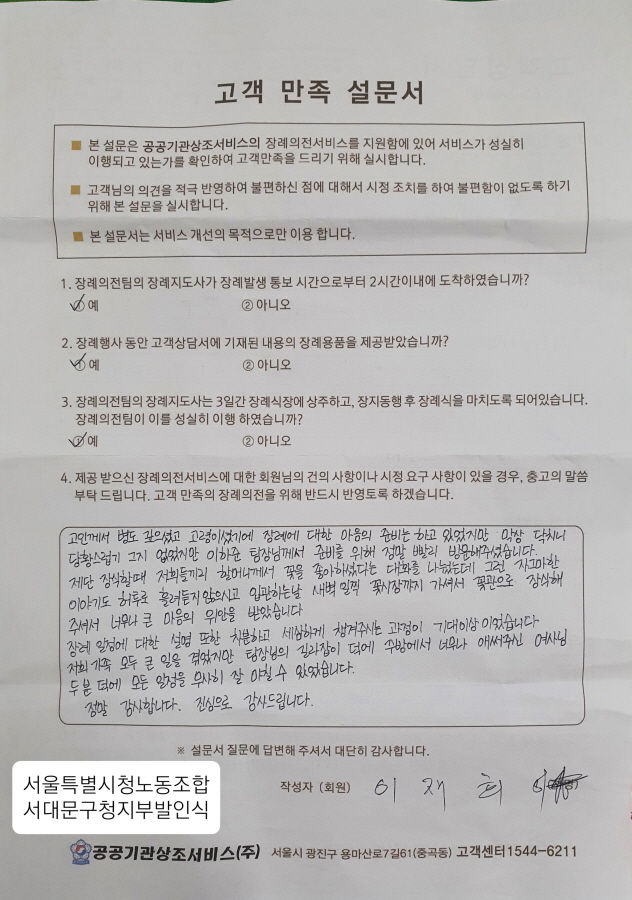 고객 만족 설문서
■ 본 설문은 공공기관상조서비스의 장례의전서비스를 지원함에 있어 서비스가 성실히
이행되고 있는가를 확인하여 고객만족을 드리기 위해 실시합니다.
■ 고객님의 의견을 적극 반영하여 불편하신 점에 대해서 시정 조치를 하여 불편함이 없도록 하기
위해 본 설문을 실시합니다.
■ 본 설문서는 서비스 개선의 목적으로만 이용 합니다.
1. 장례의전팀의 장례지도사가 장례발생 통보 시간으로부터 2시간이내에 도착하였습니까?
① 예 ② 아니오
2. 장례행사 동안 고객상담서에 기재된 내용의 장례용품을 제공받았습니까?
① 예 ② 아니오
3. 장례의전팀의 장례지도사는 3일간 장례식장에 상주하고, 장지동행 후 장례식을 마치도록 되어있습니다.
장례의전팀이 이를 성실히 이행 하였습니까?
① 예 ② 아니오
4. 제공 받으신 장례의전서비스에 대한 회원님의 건의 사항이나 시정 요구 사항이 있을 경우, 충고의 말씀
부탁 드립니다. 고객 만족의 장례의전을 위해 반드시 반영토록 하겠습니다.
고인께서 병도 깊으셨고 고령이셨기에 장례에 대한 마음의 준비는 하고 있었지만 막상 닥치니
당황스럽기 그지 없었지만 이하준 팀장님께서 준비를 위해 정말 빨리 방문해주셨습니다.
제단 장식할때 저희들끼리 할머니께서 꽃을 좋아하셨다는 대화를 나눴는데 그런 자그마한
이야기도 허투로 흘려듣지않으시고 입관하는날 새벽 일찍 꽃시장까지 가셔서 꽃관으로 장식해
주셔서 너무나 큰 마음의 위안을 받았습니다
장례 일정에 대한 설명 또한 차분하고 세심하게 챙겨주시는 과정이 기대이상이었습니다
저희 가족 모두 큰 일을 겪었지만 팀장님의 길라잡이 덕에 주방에서 너무나 애써주신 여사님
두분 덕에 모든 일정을 무사히 잘 마칠 수 있었습니다.
정말 감사합니다. 진심으로 감사드립니다.
※ 설문서 질문에 답변해 주셔서 대단히 감사합니다.
작성자 (회원) 이 재 희
서울특별시청노동조합
서대문구청지부발인식
공공기관상조서비스(주) 서울시 광진구 용마산로7길61(중곡동) 고객센터1544-6211